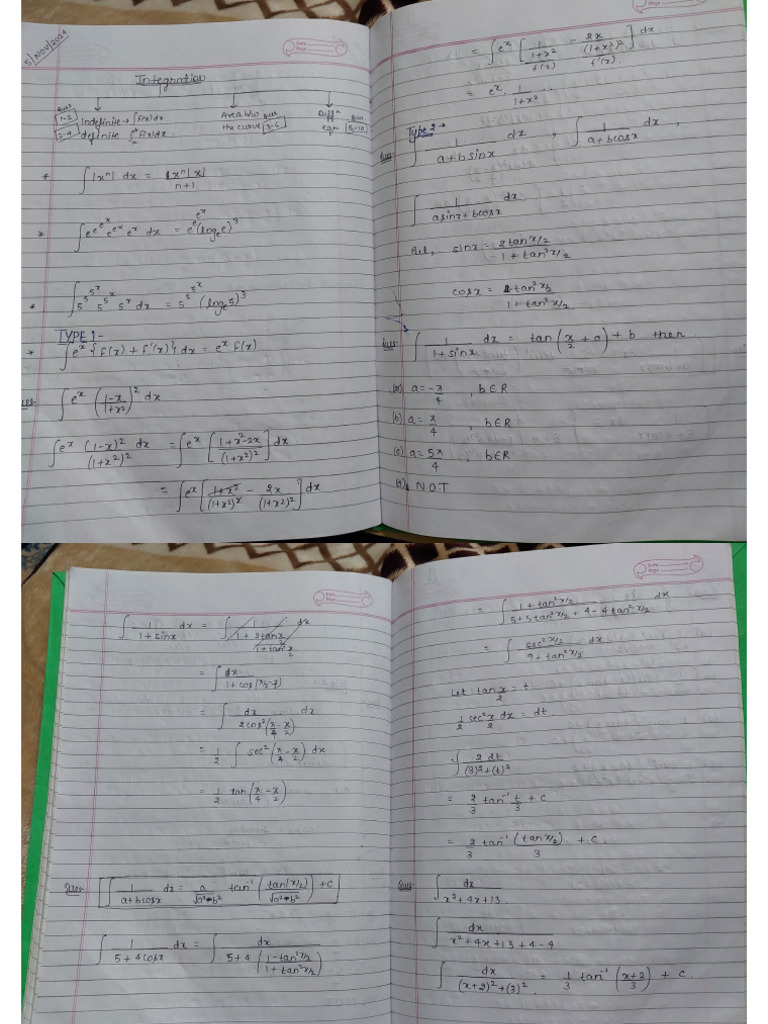 5/Nov/2024
Date
Page
Integration
Ques
1-2 Indefinite → ∫f(x)dx
2-4 definite ∫f(x)dx.
Area b/w Ques
the curve 3-6
Diffⁿ Ques
eqn 8-10
* ∫|xⁿ| dx = |xⁿ|x| / n+1
* ∫e^e^e^x e^e^x e^x dx = e^e^e^x (logₑe)³
* ∫5^5^5^x 5^5^x 5^x dx = 5^5^5^x (logₑ5)³
TYPE 1-
* ∫e^x {f(x) + f'(x)} dx = e^x f(x)
Ques ∫e^x (1-x / 1+x²)² dx
∫e^x (1-x)² / (1+x²)² dx = ∫e^x [1+x²-2x / (1+x²)²] dx
= ∫e^x [1+x² / (1+x²)² - 2x / (1+x²)²] dx
Date
Page
= ∫e^x [1 / 1+x² - 2x / (1+x²)²] dx
f(x) f'(x)
= e^x. 1 / 1+x²
Type 2 →
Ques ∫ 1 / a+bsinx dx , ∫ 1 / a+bcosx dx ,
∫ 1 / asinx+bcosx dx
sinx = 2tanx/2 / 1+tan²x/2
cosx = 1-tan²x/2 / 1+tan²x/2
Ques ∫ 1 / 1+sinx dx = tan(x/2 + a) + b then
(a) a = -π/4 , b∈R
(b) a = π/4 , b∈R
(c) a = 5π/4 , b∈R
(d) N.O.T
Date
Page
∫ 1 / 1+sinx dx = ∫ 1 / 1+2tanx / 1+tan²x/2 dx
= ∫ dx / 1+cos(π/2-x)
= ∫ dx / 2cos²(π/4-x/2) dx
= 1/2 ∫ sec²(π/4-x/2) dx
= 1/2 tan(π/4-x/2)
Ques ∫ 1 / a+bcosx dx = 2 / √a²-b² tan⁻¹ (tan(x/2) / √a²-b²) + c
∫ 1 / 5+4cosx dx = ∫ dx / 5+4(1-tan²x/2 / 1+tan²x/2)
Date
Page
= ∫ 1+tan²x/2 / 5+5tan²x/2+4-4tan²x/2 dx
= ∫ sec²x/2 / 9+tan²x/2 dx
Let tan x/2 = t
1/2 sec²x/2 dx = dt.
= ∫ 2dt / (3)²+(t)²
= 2/3 tan⁻¹ t/3 + c
= 2/3 tan⁻¹ (tanx/2) / 3 + c.
Ques ∫ dx / x²+4x+13.
∫ dx / x²+4x+13+4-4
∫ dx / (x+2)²+(3)² = 1/3 tan⁻¹ (x+2 / 3) + c.